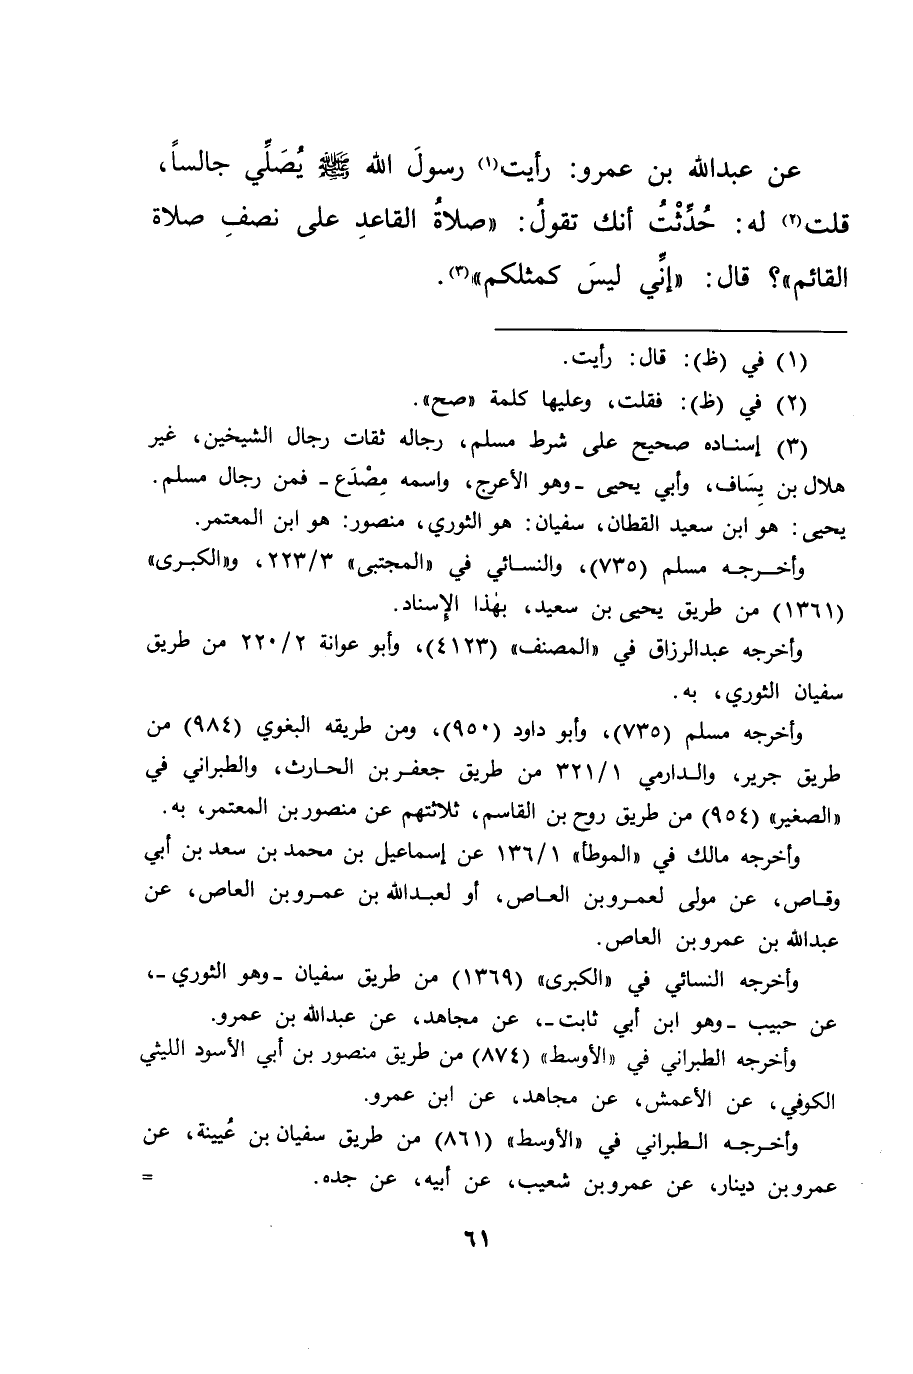 عن عبدالله بن عمرو: رأيت(١) رسولَ الله ﷺ يُصَلِّي جالساً،
قلت(٢) له: حُدِّثْتُ أنك تقولُ: «صلاةُ القاعدِ على نصفِ صلاة
القائم»؟ قال: «إنِّي ليسَ كمثلكم»(٣).
(١) في (ظ): قال: رأيت.
(٢) في (ظ): فقلت، وعليها كلمة «صح».
(٣) إسناده صحيح على شرط مسلم، رجاله ثقات رجال الشيخين، غير
هلال بن يِسَاف، وأبي يحيى -وهو الأعرج، واسمه مِصْدَع- فمن رجال مسلم.
يحيى: هو ابن سعيد القطان، سفيان: هو الثوري، منصور: هو ابن المعتمر.
وأخرجه مسلم (٧٣٥)، والنسائي في «المجتبى» ٢٢٣/٣، و«الكبرى»
(١٣٦١) من طريق يحيى بن سعيد، بهٰذا الإِسناد.
وأخرجه عبدالرزاق في «المصنف» (٤١٢٣)، وأبو عوانة ٢٢٠/٢ من طريق
سفيان الثوري، به.
وأخرجه مسلم (٧٣٥)، وأبو داود (٩٥٠)، ومن طريقه البغوي (٩٨٤) من
طريق جرير، والدارمي ٣٢١/١ من طريق جعفر بن الحارث، والطبراني في
«الصغير» (٩٥٤) من طريق روح بن القاسم، ثلاثتهم عن منصور بن المعتمر، به.
وأخرجه مالك في «الموطأ» ١٣٦/١ عن إسماعيل بن محمد بن سعد بن أبي
وقاص، عن مولى لعمرو بن العاص، أو لعبدالله بن عمرو بن العاص، عن
عبدالله بن عمرو بن العاص.
وأخرجه النسائي في «الكبرى» (١٣٦٩) من طريق سفيان -وهو الثوري-،
عن حبيب -وهو ابن أبي ثابت-، عن مجاهد، عن عبدالله بن عمرو.
وأخرجه الطبراني في «الأوسط» (٨٧٤) من طريق منصور بن أبي الأسود الليثي
الكوفي، عن الأعمش، عن مجاهد، عن ابن عمرو.
وأخرجه الطبراني في «الأوسط» (٨٦١) من طريق سفيان بن عُيينة، عن
عمرو بن دينار، عن عمرو بن شعيب، عن أبيه، عن جده. =
٦١